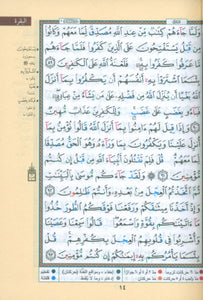 البقرة
وَلَمَّا جَآءَهُمْ كِتَٰبٌ مِّنْ عِندِ ٱللَّهِ مُصَدِّقٌ لِّمَا مَعَهُمْ وَكَانُوا۟
مِن قَبْلُ يَسْتَفْتِحُونَ عَلَى ٱلَّذِينَ كَفَرُوا۟ فَلَمَّا جَآءَهُم
مَّا عَرَفُوا۟ كَفَرُوا۟ بِهِۦ فَلَعْنَةُ ٱللَّهِ عَلَى ٱلْكَٰفِرِينَ ٨٩
بِئْسَمَا ٱشْتَرَوْا۟ بِهِۦٓ أَنفُسَهُمْ أَن يَكْفُرُوا۟ بِمَآ أَنزَلَ
ٱللَّهُ بَغْيًا أَن يُنَزِّلَ ٱللَّهُ مِن فَضْلِهِۦ عَلَىٰ مَن يَشَآءُ مِنْ عِبَادِهِۦ
فَبَآءُو بِغَضَبٍ عَلَىٰ غَضَبٍ وَلِلْكَٰفِرِينَ عَذَابٌ مُّهِينٌ ٩٠
وَإِذَا قِيلَ لَهُمْ ءَامِنُوا۟ بِمَآ أَنزَلَ ٱللَّهُ قَالُوا۟ نُؤْمِنُ بِمَآ أُنزِلَ
عَلَيْنَا وَيَكْفُرُونَ بِمَا وَرَآءَهُۥ وَهُوَ ٱلْحَقُّ مُصَدِّقًا
لِّمَا مَعَهُمْ قُلْ فَلِمَ تَقْتُلُونَ أَنۢبِيَآءَ ٱللَّهِ مِن قَبْلُ إِن كُنتُم
مُّؤْمِنِينَ ٩١ وَلَقَدْ جَآءَكُم مُّوسَىٰ بِٱلْبَيِّنَٰتِ ثُمَّ
ٱتَّخَذْتُمُ ٱلْعِجْلَ مِنۢ بَعْدِهِۦ وَأَنتُمْ ظَٰلِمُونَ ٩٢
وَإِذْ أَخَذْنَا مِيثَٰقَكُمْ وَرَفَعْنَا فَوْقَكُمُ ٱلطُّورَ خُذُوا۟
مَآ ءَاتَيْنَٰكُم بِقُوَّةٍ وَٱسْمَعُوا۟ قَالُوا۟ سَمِعْنَا وَعَصَيْنَا
وَأُشْرِبُوا۟ فِى قُلُوبِهِمُ ٱلْعِجْلَ بِكُفْرِهِمْ قُلْ
بِئْسَمَا يَأْمُرُكُم بِهِۦٓ إِيمَٰنُكُمْ إِن كُنتُم مُّؤْمِنِينَ ٩٣
١٤